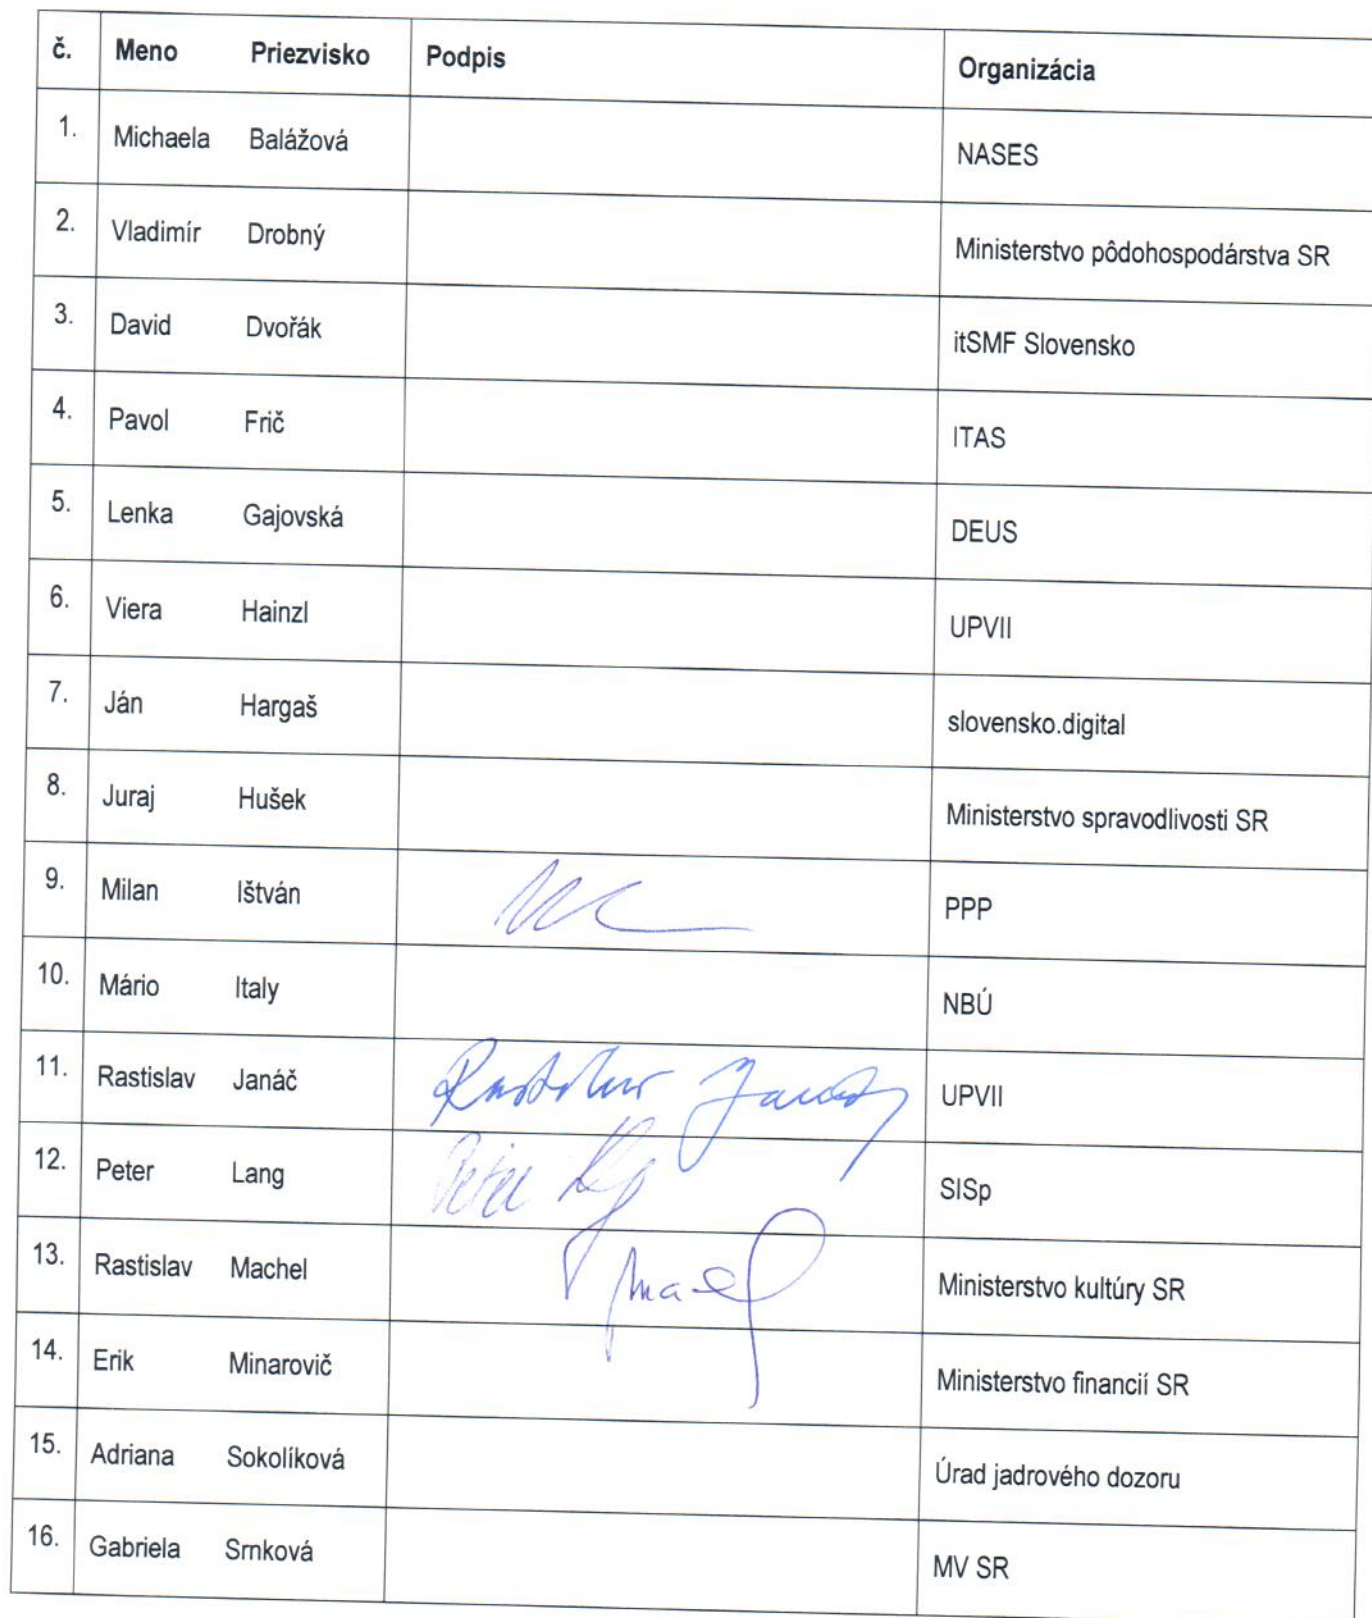 č. Meno Priezvisko Podpis Organizácia
1. Michaela Balážová NASES
2. Vladimír Drobný Ministerstvo pôdohospodárstva SR
3. David Dvořák itSMF Slovensko
4. Pavol Frič ITAS
5. Lenka Gajovská DEUS
6. Viera Hainzl UPVII
7. Ján Hargaš slovensko.digital
8. Juraj Hušek Ministerstvo spravodlivosti SR
9. Milan Ištván PPP
10. Mário Italy NBÚ
11. Rastislav Janáč Rastislav Janáč UPVII
12. Peter Lang Peter SISp
13. Rastislav Machel Ministerstvo kultúry SR
14. Erik Minarovič Ministerstvo financií SR
15. Adriana Sokolíková Úrad jadrového dozoru
16. Gabriela Srnková MV SR